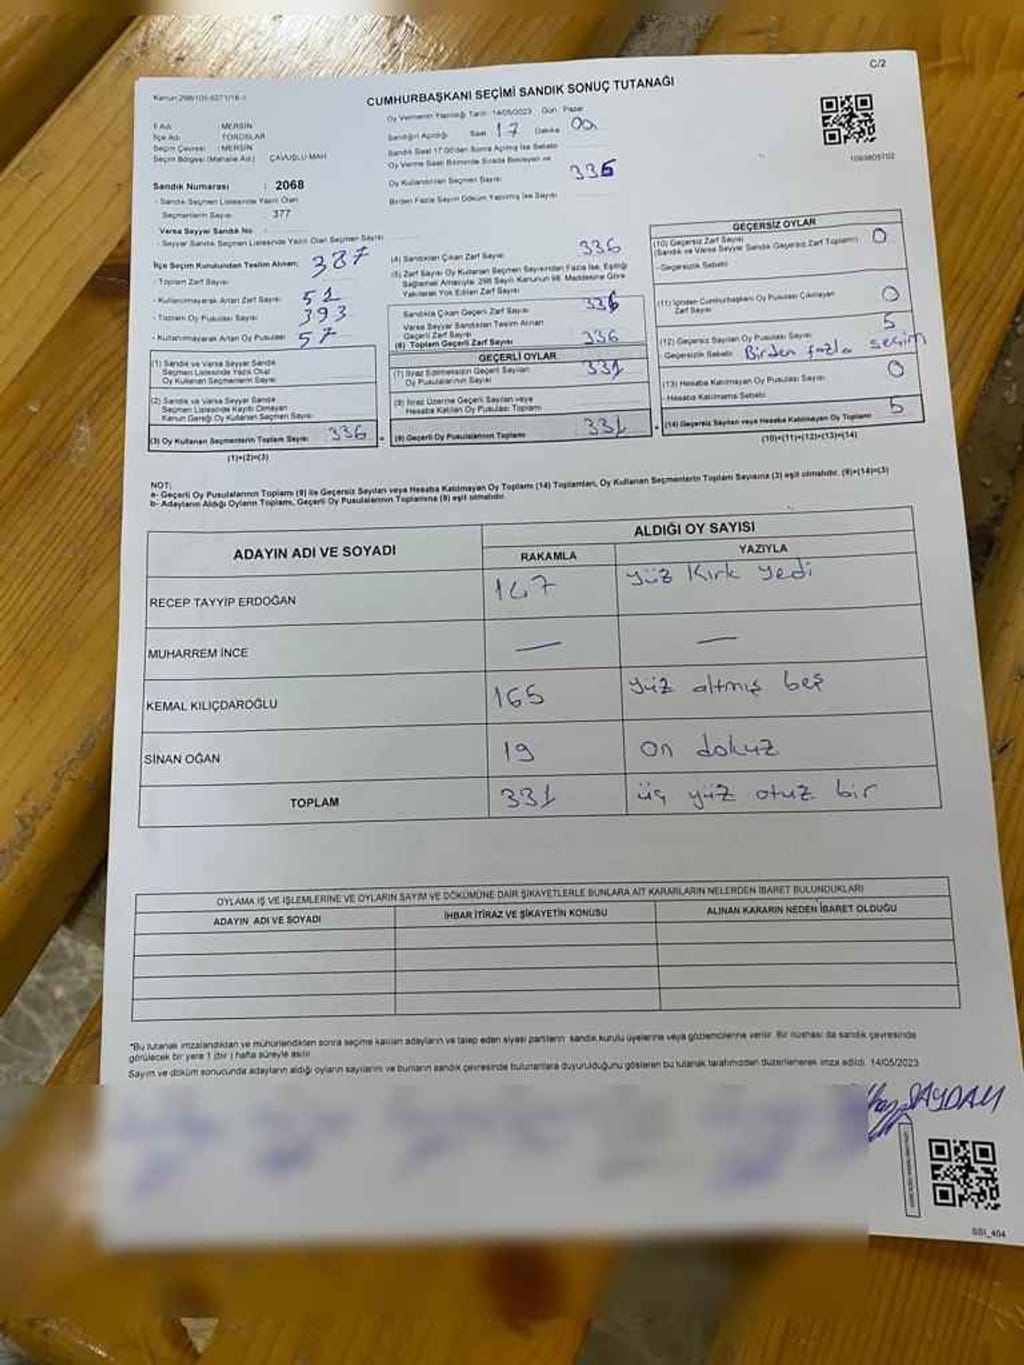 C/2
Kanun:298/105-6271/18-1
CUMHURBAŞKANI SEÇİMİ SANDIK SONUÇ TUTANAĞI
İl Adı : MERSİN
İlçe Adı : TOROSLAR
Seçim Çevresi : MERSİN
Seçim Bölgesi (Mahalle Adı) ÇAVUŞLU MAH
Sandık Numarası : 2068
- Sandık Seçmen Listesinde Yazılı Olan
Seçmenlerin Sayısı 377
Varsa Seyyar Sandık No
- Seyyar Sandık Seçmen Listesinde Yazılı Olan Seçmen Sayısı
İlçe Seçim Kurulundan Teslim Alınan;
- Toplam Zarf Sayısı 387
- Kullanılmayarak Artan Zarf Sayısı 51
- Toplam Oy Pusulası Sayısı 393
- Kullanılmayarak Artan Oy Pusulası Sayısı 57
Oy Vermenin Yapıldığı Tarih: 14/05/2023 Gün: Pazar
Sandığın Açıldığı Saat 17 Dakika 00
Sandık Saat 17.00'den Sonra Açılmış İse Sebebi
Oy Verme Saati Bitiminde Sırada Bekleyen ve
Oy Kullandırılan Seçmen Sayısı 336
Birden Fazla Sayım Döküm Yapılmış İse Sayısı
1093805702
(1) Sandık ve Varsa Seyyar Sandık
Seçmen Listesinde Yazılı Olup
Oy Kullanan Seçmenlerin Sayısı
(2) Sandık ve Varsa Seyyar Sandık
Seçmen Listesinde Kayıtlı Olmayan
Kanun Gereği Oy Kullanan Seçmen Sayısı
(3) Oy Kullanan Seçmenlerin Toplam Sayısı 336
(1)+(2)=(3)
(4) Sandıktan Çıkan Zarf Sayısı 336
(5) Zarf Sayısı Oy Kullanan Seçmen Sayısından Fazla İse, Eşitliği
Sağlamak Amacıyla; 298 Sayılı Kanunun 98. Maddesine Göre
Yakılarak Yok Edilen Zarf Sayısı
Sandıkta Çıkan Geçerli Zarf Sayısı 336
Varsa Seyyar Sandıktan Teslim Alınan
Geçerli Zarf Sayısı
(6) Toplam Geçerli Zarf Sayısı 336
GEÇERLİ OYLAR
(7) İtiraz Edilmeksizin Geçerli Sayılan
Oy Pusulalarının Sayısı 331
(8) İtiraz Üzerine Geçerli Sayılan veya
Hesaba Katılan Oy Pusulası Toplamı
(9) Geçerli Oy Pusulalarının Toplamı 331
GEÇERSİZ OYLAR
(10) Geçersiz Zarf Sayısı 0
(Sandık ve Varsa Seyyar Sandık Geçersiz Zarf Toplamı)
- Geçersizlik Sebebi
(11) İçinden Cumhurbaşkanı Oy Pusulası Çıkmayan
Zarf Sayısı 0
(12) Geçersiz Sayılan Oy Pusulası Sayısı 5
Geçersizlik Sebebi Birden fazla seçim
(13) Hesaba Katılmayan Oy Pusulası Sayısı 0
- Hesaba Katılmama Sebebi
(14) Geçersiz Sayılan veya Hesaba Katılmayan Oy Toplamı 5
(10)+(11)+(12)+(13)=(14)
NOT:
a- Geçerli Oy Pusulalarının Toplamı (9) ile Geçersiz Sayılan veya Hesaba Katılmayan Oy Toplamı (14) Toplamları, Oy Kullanan Seçmenlerin Toplam Sayısına (3) eşit olmalıdır. (9)+(14)=(3)
b- Adayların Aldığı Oyların Toplamı, Geçerli Oy Pusulalarının Toplamına (9) eşit olmalıdır.
ADAYIN ADI VE SOYADI
ALDIĞI OY SAYISI
RAKAMLA YAZIYLA
RECEP TAYYİP ERDOĞAN 147 yüz Kırk yedi
MUHARREM İNCE — —
KEMAL KILIÇDAROĞLU 165 yüz altmış beş
SİNAN OĞAN 19 on dokuz
TOPLAM 331 üç yüz otuz bir
OYLAMA İŞ VE İŞLEMLERİNE VE OYLARIN SAYIM VE DÖKÜMÜNE DAİR ŞİKAYETLERLE BUNLARA AİT KARARLARIN NELERDEN İBARET BULUNDUKLARI
ADAYIN ADI VE SOYADI İHBAR İTİRAZ VE ŞİKAYETİN KONUSU ALINAN KARARIN NEDEN İBARET OLDUĞU
*Bu tutanak imzalandıktan ve mühürlendikten sonra seçime katılan adayların ve talep eden siyasi partilerin sandık kurulu üyelerine veya gözlemcilerine verilir. Bir nüshası da sandık çevresinde
görülecek bir yere 1 (bir) hafta süreyle asılır.
Sayım ve döküm sonucunda adayların aldığı oyların sayılarını ve bunların sandık çevresinde bulunanlara duyurulduğunu gösteren bu tutanak tarafımızdan düzenlenerek imza edildi. 14/05/2023
SAYDAM
SSI_404